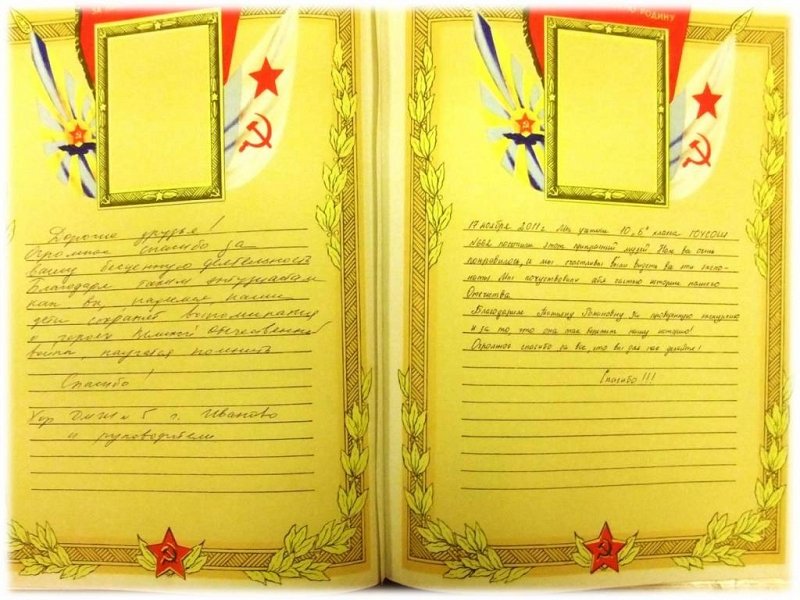 РОДИНУ
Дорогие друзья!
Огромное спасибо за
вашу бесценную деятельность
Благодаря таким энтузиастам
как вы, надеемся, наши
дети сохранят воспоминания
о героях Великой Отечественной
войны, научатся помнить
Спасибо!
Хор ДМШ № 5 г. Иваново
и руководители
17 ноября 2011 г. Мы ученики 10 "Б" класса ГОУСОШ
№662 посетили этот прекрасный музей. Нам он очень
понравился, и мы счастливы были видеть все эти экспо-
наты. Мы почувствовали себя частью истории нашего
Отечества.
Благодарим Татьяну Романовну за проведенную экскурсию
и за то, что она так нашу историю!
Огромное спасибо за все, что вы для нас делаете!
Спасибо!!!